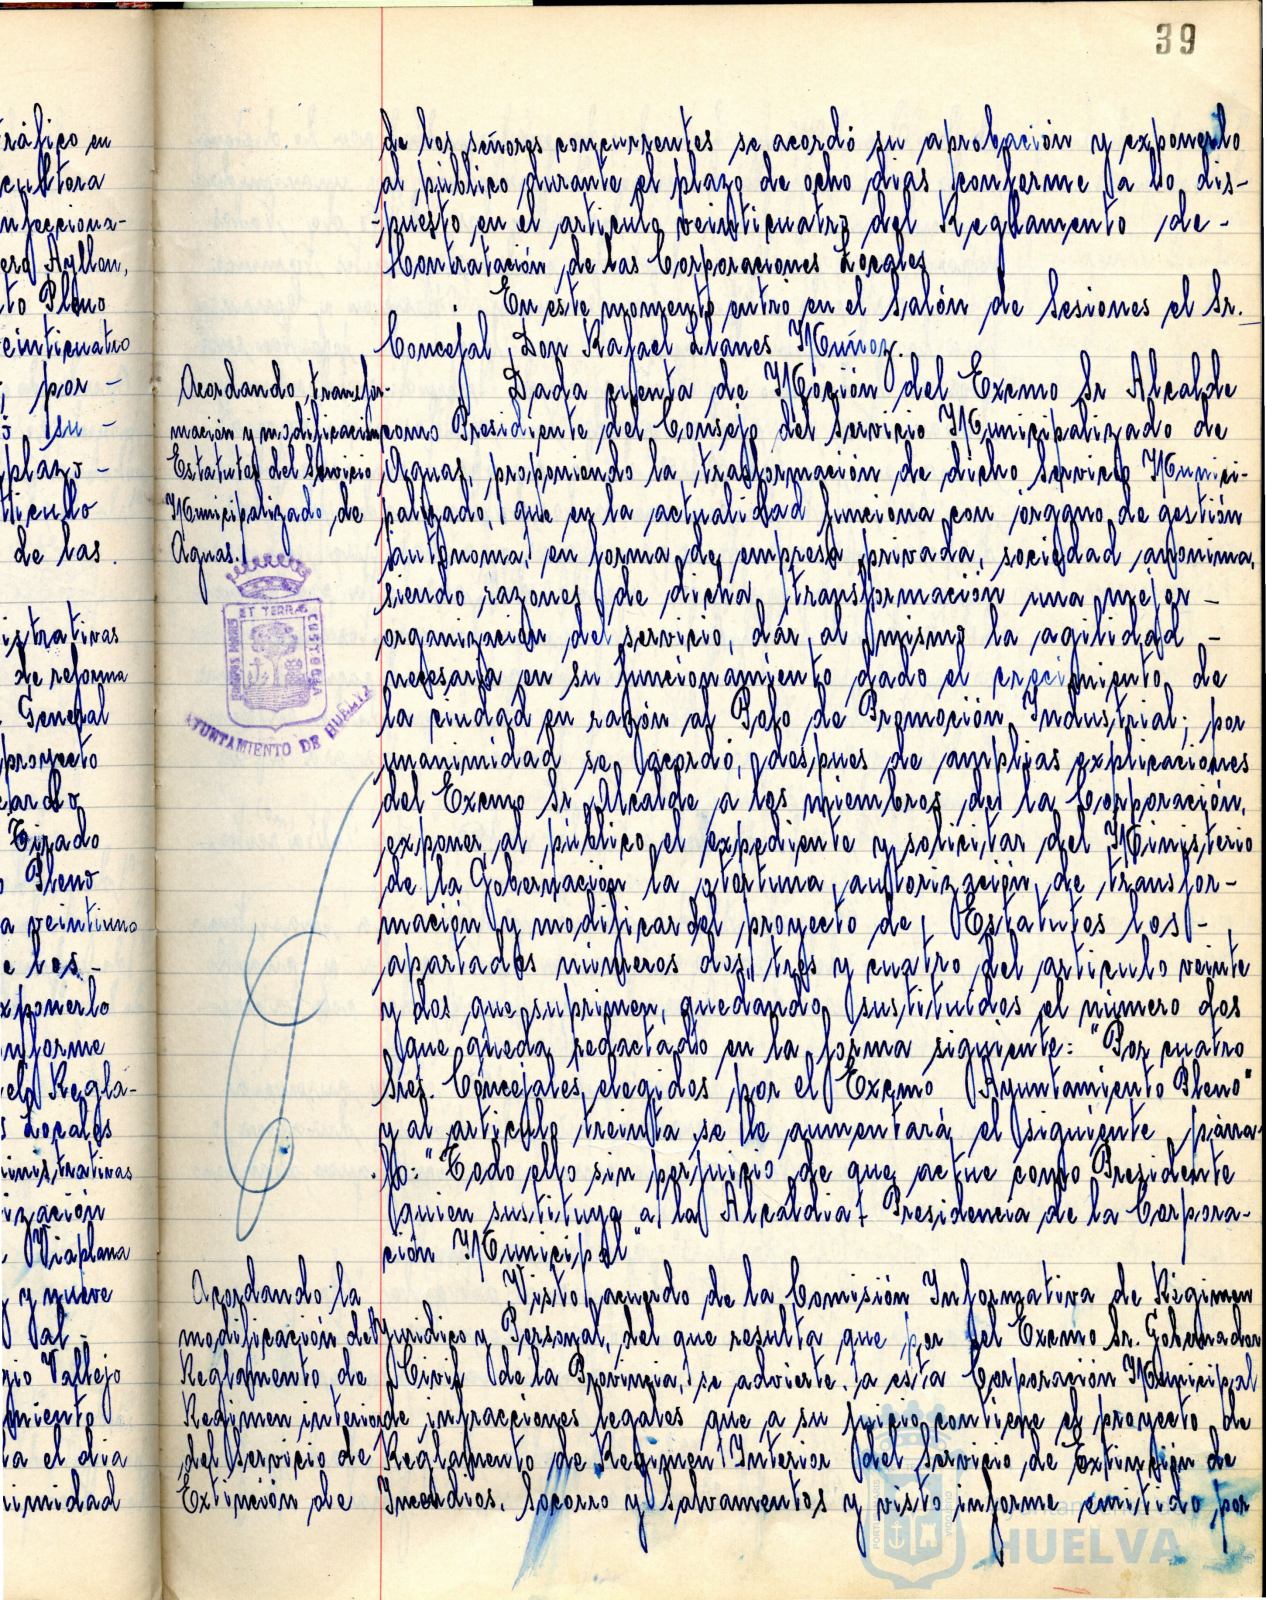 39
ráfico en
cultora
nfecciona-
ero Ayllon,
to Pleno
einticuatro
, por -
ó su -
plazo -
tículo
de las.
istrativas
de reforma
General
proyecto
cardo
Tirado
o Pleno
a veintiuno
e los -
xponerlo
nforme
el Regla-
s Locales
inistrativas
ización
Viaplana
y nueve
Val-
gio Vallejo
miento
la el dia
nimidad
de los señores concurrentes se acordó su aprobación y exponerlo
al público durante el plazo de ocho dias, conforme a lo dis-
-puesto en el articulo veinticuatro del Reglamento de -
Contratación de las Corporaciones Locales
En este momento entró en el Salón de Sesiones el Sr.
Concejal, Don Rafael Llanes Muñoz.
Acordando, transfor-
mación y modificación
Estatutos del Servicio
Municipalizado de
Aguas.
Dada cuenta de Moción del Excmo Sr Alcalde
como Presidente del Consejo del Servicio Municipalizado de
Aguas, proponiendo la trasformación de dicho Servicio Munici-
palizado, que en la actualidad funciona con órgano de gestión
autónoma, en forma de empresa privada, sociedad anonima,
siendo razones de dicha transformación una mejor -
organización del servicio, dar al mismo la agilidad -
necesaria en su funcionamiento dado el crecimiento de
la ciudad en razón al Polo de Promoción Industrial; por
unanimidad se acordó, despues de amplias explicaciones
del Excmo Sr Alcalde a los miembros de la Corporación,
exponer al público el expediente y solicitar del Ministerio
de la Gobernación la oportuna autorización de transfor-
mación y modificar del proyecto de Estatutos los -
apartados números dos, tres y cuatro del articulo veinte
y dos que suprimen, quedando sustituidos el número dos
que queda redactado en la forma siguiente: "Por cuatro
Sres. Concejales elegidos por el Excmo Ayuntamiento Pleno"
y al articulo treinta se le aumentará el siguiente párra-
fo: "Todo ello sin perjuicio de que actue como Presidente
quien sustituya a la Alcaldia Presidencia de la Corpora-
ción Municipal"
ET TERRAE CUSTODIA
PORTUS MARIS
AYUNTAMIENTO DE HUELVA
Acordando la
modificación del
Reglamento de
Regimen interior
del Servicio de
Extinción de
Visto acuerdo de la Comisión Informativa de Régimen
Juridico y Personal, del que resulta que por el Excmo Sr. Gobernador
Civil de la Provincia, se advierte a esta Corporación Municipal
de infracciones legales que a su juicio contiene el proyecto de
Reglamento de Regimen Interior del Servicio de Extinción de
Incendios, Socorro y Salvamentos y visto informe emitido por
HUELVA